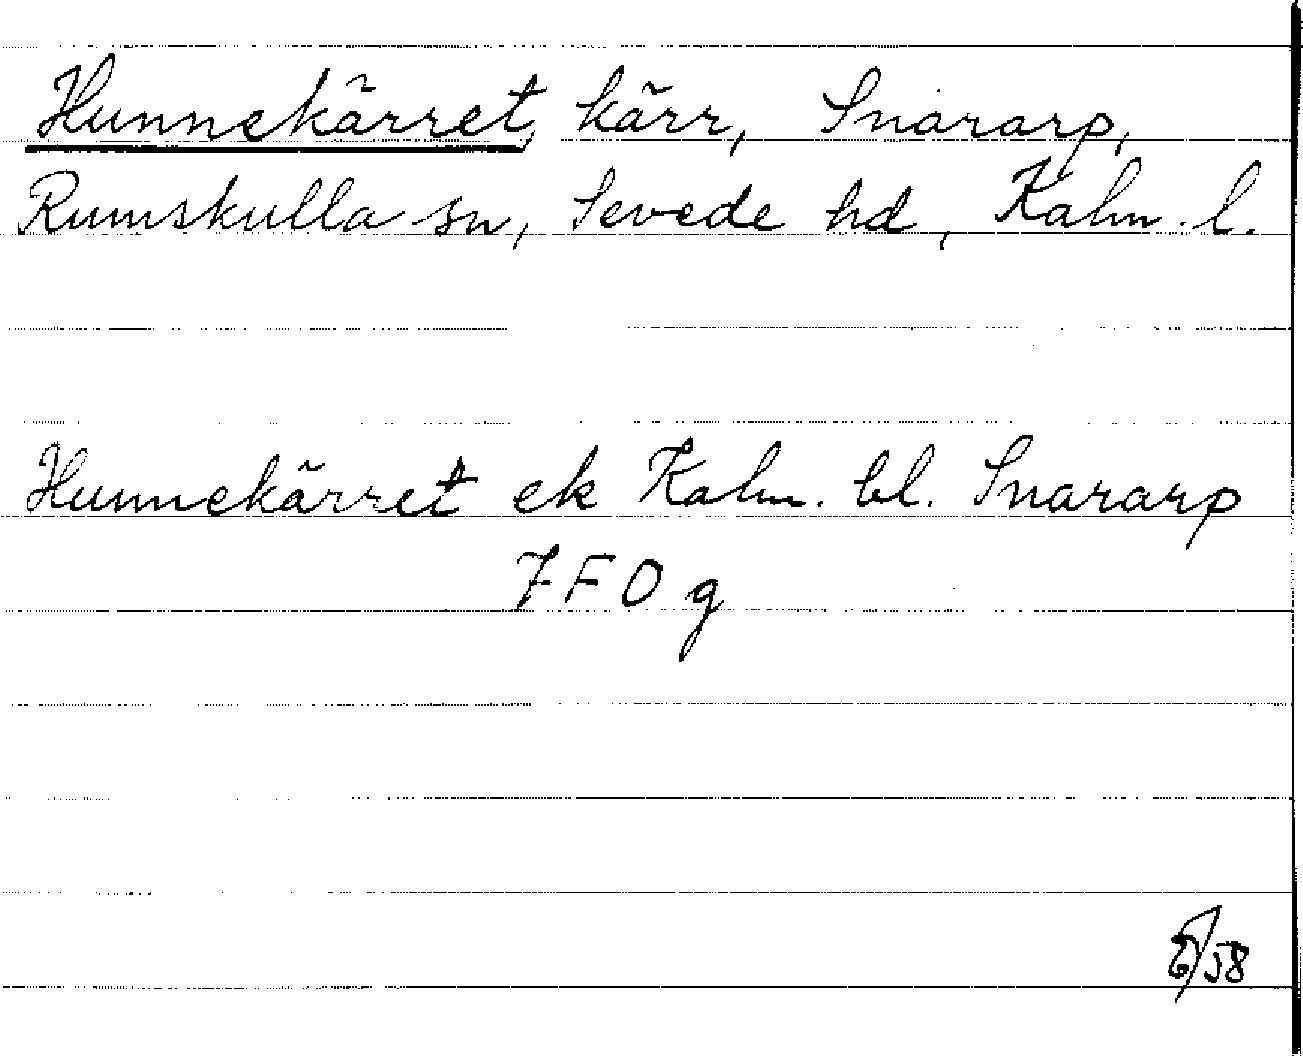 Hunnekärret, kärr, Snararp,
Rumskulla sn, Sevede hd, Kalm. l.
Hunnekärret ek Kalm. bl. Snararp
7 F 0 g